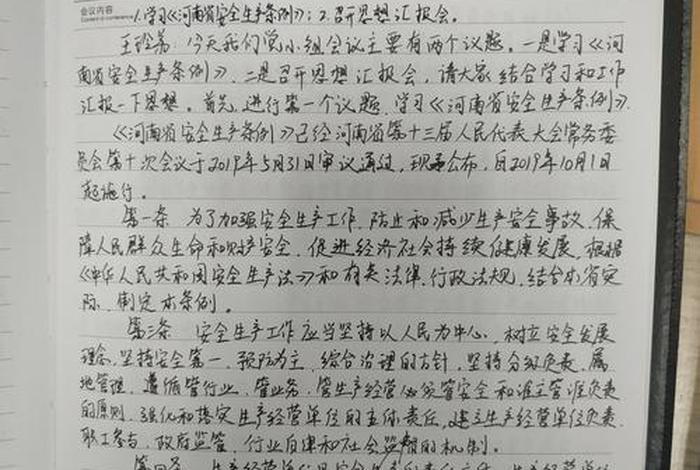 会议内容
Content of conference
1.学习《河南省安全生产条例》；2.召开思想汇报会。
王玲芳：今天我们党小组会议主要有两个议题。一是学习《河
南省安全生产条例》，二是召开思想汇报会，请大家结合学习和工作
汇报一下思想。首先，进行第一个议题，学习《河南省安全生产条例》。
《河南省安全生产条例》已经河南省第十三届人民代表大会常务委
员会第十次会议于2019年5月31日审议通过，现予公布，自2019年10月1日
起施行。
第一条 为了加强安全生产工作，防止和减少生产安全事故，保
障人民群众生命和财产安全，促进经济社会持续健康发展，根据
《中华人民共和国安全生产法》和有关法律、行政法规，结合本省实
际，制定本条例。
第三条 安全生产工作应当坚持以人民为中心，树立安全发展
理念，坚持安全第一、预防为主、综合治理的方针，坚持分级负责、属
地管理，遵循管行业、管业务、管生产经营必须管安全和谁主管谁负责
的原则，强化和落实生产经营单位的主体责任，建立生产经营单位负责、
职工参与、政府监管、行业自律和社会监督的机制。
第四条 生产经营单位是安全生产的责任主体，生产经营单